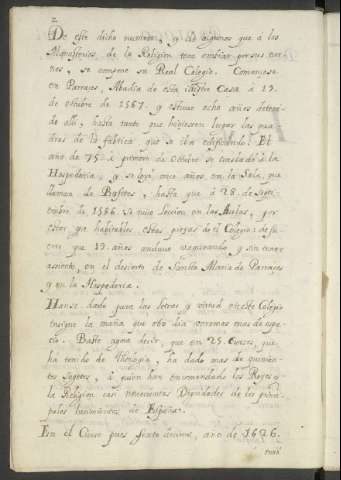 2.
De este dicho numero, y de algunos que a los
Monasterios, de la Religion toca embiar por sus tur-
nas, se compone su Real Colegio. Comenzose
en Parraces, Abadia de esta nuestra Casa à 19.
de otubre de 1567. y estuvo ocho años deteni-
do alli, hasta tanto que hubiessen lugar las qua-
dras de la fabrica que se iba edificando: El
año de 75. à primero de Octubre se trasladó à la
Hospederia, y se leyó once años, en la Sala, que
llaman de Bufetes, hasta que à 28. de Setie-
mbre de 1586. se tuvo leccion en las Aulas, por
estar ya habitables estas piezas de el Colegio: de su
erte que 19. años anduvo vagueando y sin tomar
assiento, en el desierto de Santa Maria de Parraces
y en la Hospederia.
Hanse dado para las letras y virtud en este Colegio
insigne la maña que otro dia veremos mas de espa-
cio. Baste agora decir, que en 25. Cursos, que
ha tenido de Theologia, ha dado mas de quinien-
tos Sugetos, à quien han encomendado los Reyes y
la Religion casi novecientas Dignidades de los prin-
pales ministerios de España.
En el Curso pues sexto decimo, año de 1626.